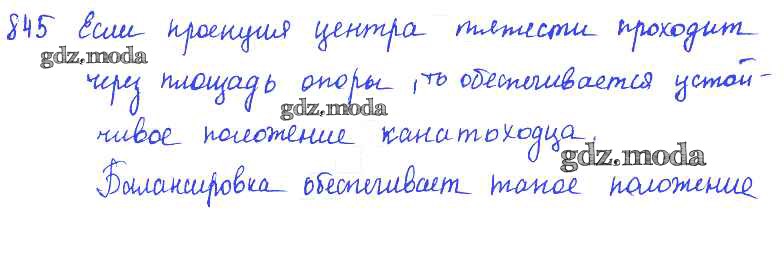 845 Если проекция центра тяжести проходит
gdz.moda
через площадь опоры, то обеспечивается устой-
gdz.moda
чивое положение канатоходца.
gdz.moda
Балансировка обеспечивает такое положение